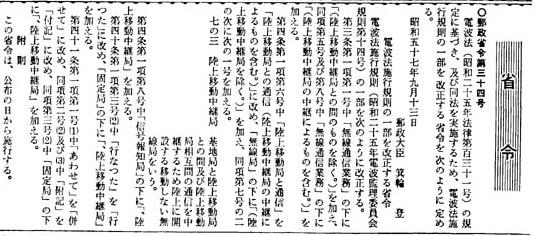 省令
○郵政省令第三十四号
電波法(昭和二十五年法律第百三十一号)の規
定に基づき、及び同法を実施するため、電波法施
行規則の一部を改正する省令を次のように定め
る。
昭和五十七年九月十三日
郵政大臣 箕輪 登
電波法施行規則の一部を改正する省令
電波法施行規則(昭和二十五年電波監理委員会
規則第十四号)の一部を次のように改正する。
第三条第一項第三号中「無線通信業務」の下に
「(陸上移動中継局との間のものを除く。)」を加え、
同項第五号及び第八号中「無線通信業務」の下に
「(陸上移動中継局の中継によるものを含む。)」を
加える。
第四条第一項第六号中「陸上移動局と通信」を
「陸上移動局との通信(陸上移動中継局の中継に
よるものを含む。)」に改め、「無線局」の下に「(陸
上移動中継局を除く。)」を加え、同項第七号の二
の次に次の一号を加える。
七の三 陸上移動中継局 基地局と陸上移動局
との間及び陸上移動
局相互間の通信を中
継するため陸上に開
設する移動しない無
線局をいう。
第四条第一項第八号中「信号報知局」の下に「、陸
上移動中継局」を加える。
第四十条第一項第三号(2)中「行なつた」を「行
つた」に改め、「固定局」の下に「、陸上移動中継局」
を加える。
第四十一条第一項第一号(1)中「あわせて」を「併
せて」に改め、同項第二号(2)及び(3)中「附記」を
「付記」に改め、同項第三号(2)中「固定局」の下
に「、陸上移動中継局」を加える。
附則
この省令は、公布の日から施行する。